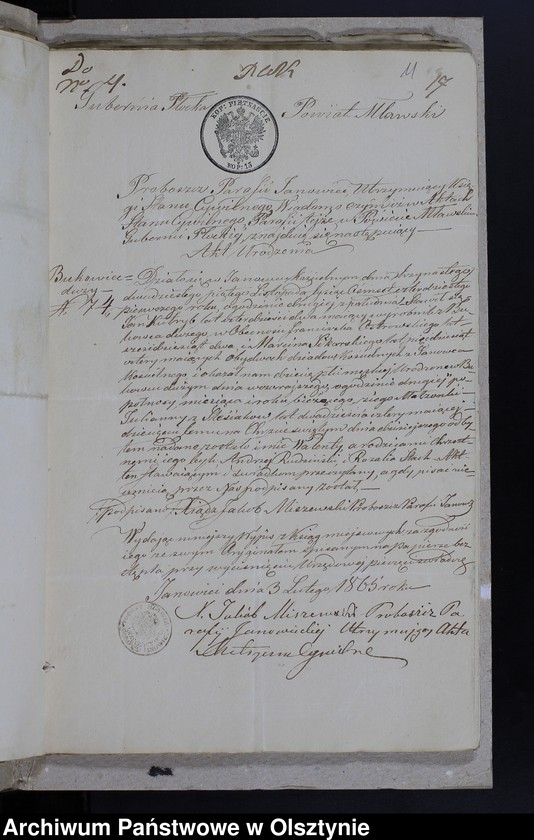 Do
No 4.
11
17
Gubernia Płocka
Powiat Mławski
KOP: PIETNAŚCIE
KOP: 15
Proboszcz Parafii Janowiec Utrzymujący Księ-
gi Stanu Cywilnego, Wiadomo czyni iż w Aktach
Stanu Cywilnego, Parafii tejże w Powiecie Mławskim
Gubernii Płockiej, znajduje się następujący
Akt Urodzenia
Bukowiec
duży
N. 74,
Działo się w Janowcu Kościelnym dnia
dwudziestego piątego Listopada tysiąc ośmset czterdziestego
pierwszego roku, o godzinie drugiej z południa. Stawił się
Jan lat czterdzieści dwa mający wyrobnik z Bu-
kowca dużego, w Obecności Ostrowskiego lat
sześćdziesiąt dwa, i Marcina lat pięćdziesiąt
cztery mających obydwóch dziadów Kościelnych z Janowca
Kościelnego i okazał nam dziecię płci męskiej urodzone w Bu-
kowcu dużym dnia wczorajszego, o godzinie drugiej po
północy, miesiąca i roku bieżącego, z jego Małżonki
Julianny z lat dwadzieścia cztery mającej
dziecięciu temu na Chrzcie świętym dnia dzisiejszego odby-
tem nadane zostało imie Walenty, a rodzicami Chrzest-
nymi jego byli Andrzej Rudziński i Rozalia Akt
ten stawającym i świadkom przeczytany, a gdy pisać nie-
umieją przez Nas podpisany został
podpisano Xiądz Jakób Miszewski Proboszcz Parafii Janow:
Wydając niniejszy Wypis z Ksiąg miejscowych za zgodność
jego ze swym Oryginałem spisanym na papierze bez
stępla przy wyciśnięciu Urzędowej pieczęci
Janowiec dnia 3 Lutego 1865 roku
X. Jakób Miszewski Proboszcz Pa-
rafij Janowieckiej Utrzymujący Akta
Cywilne
Archiwum Państwowe w Olsztynie